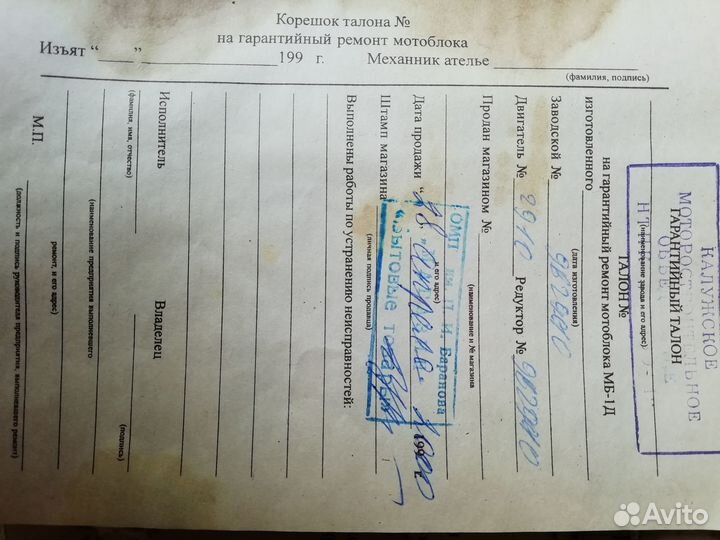 Корешок талона №
на гарантийный ремонт мотоблока
Изъят “____”____________________199 г. Механник ателье ____________________
(фамилия, подпись)
КАЛУЖСКОЕ
МОТОРОСТРОИТЕЛЬНОЕ
ГАРАНТИЙНЫЙ ТАЛОН
(наименование завода и его адрес)
ТАЛОН №
на гарантийный ремонт мотоблока МБ-1Д
изготовленного
(дата изготовления)
Заводской №
Двигатель № 2910 Редуктор №
Продан магазином №
(наименование и № магазина
и его адрес)
Дата продажи “18” Января 199 г.
Штамп магазина
(личная подпись продавца)
ОМП им. П. И. Баранова
“Бытовые товары”
Выполнены работы по устранению неисправностей:
Исполнитель Владелец
(фамилия, имя, отчество) (подпись)
(наименование предприятия выполнившего
ремонт, и его адрес)
М.П.
(должность и подпись руководителя предприятия, выполнившего ремонт)
Avito